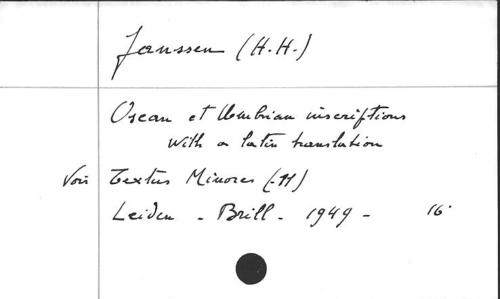 Janssen (H.H.)
Oscan et Umbrian inscriptions
with a latin translation
Voir Textus Minores (-11)
Leiden - Brill - 1949 - 16°